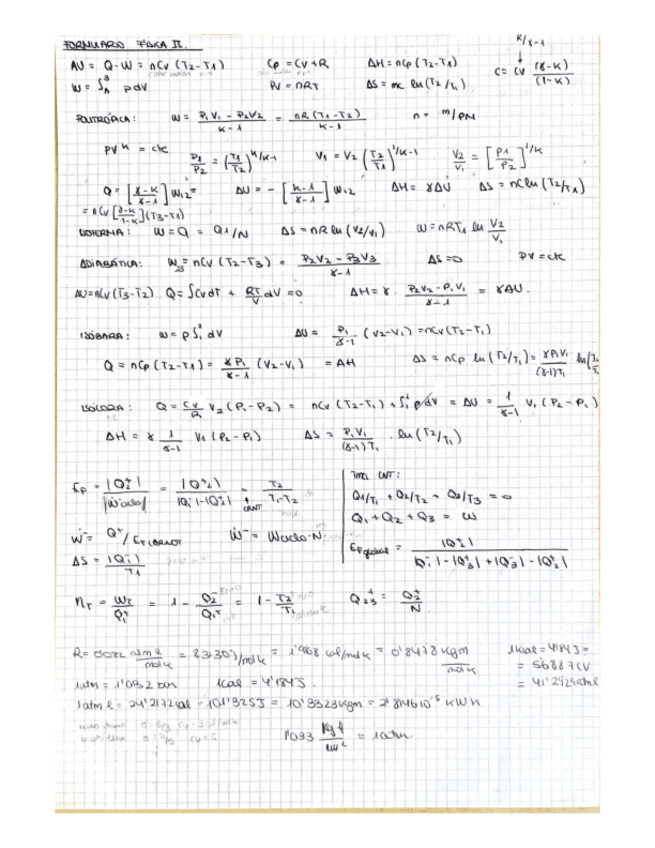 FORMULARIO FÍSICA II.
K/γ-1
ΔU = Q-W = nCv (T2-T1)   Cp = Cv+R   ΔH = nCp (T2-T1)   C = Cv (γ-K)/(1-K)
W = ∫A^B p dV   PV = nRT   ΔS = mc ln(T2/T1)
POLITRÓPICA: W = (P1V1 - P2V2)/(K-1) = nR(T1-T2)/(K-1)   n = m/PM
PV^K = cte   P1/P2 = (T1/T2)^K/K-1   V1 = V2 (T2/T1)^1/K-1   V2/V1 = [P1/P2]^1/K
Q = [(γ-K)/(γ-1)] W12 =   ΔU = - [(K-1)/(γ-1)] W12   ΔH = γΔU   ΔS = nC ln(T2/T1)
= nCv [(γ-K)/(1-K)] (T3-T1)
ISOTERMA: W = Q = Q1/N   ΔS = nR ln(V2/V1)   W = nRT1 ln V2/V1
ADIABÁTICA: W23 = nCv (T2-T3) = (P2V2 - P3V3)/(γ-1)   ΔS=0   PV = cte
ΔU = nCv (T3-T2)   Q = ∫CvdT + RT/V dV = 0   ΔH = γ · (P2V2-P1V1)/(γ-1) = γΔU.
ISÓBARA: W = p∫1^2 dV   ΔU = P1/(γ-1) (V2-V1) = nCv(T2-T1)
Q = nCp (T2-T1) = γP1/(γ-1) (V2-V1) = ΔH   ΔS = nCp ln (T2/T1) = γP1V1/(γ-1)T1 ln(T2
ISÓCORA: Q = Cv/R V2 (P1-P2) = nCv (T2-T1) + ∫1^2 p dV = ΔU = 1/(γ-1) V1 (P2-P1)
ΔH = γ 1/(γ-1) V1 (P2-P1)   ΔS = P1V1/(γ-1)T1 · ln(T2/T1)
EF = |Q2+|/|Wciclo| = |Q2+|/(|Q1-|-|Q2+|) = T2/(T1-T2)
Tma
Q1/T1 + Q2/T2 - Q3/T3 = 0
Q1 + Q2 + Q3 = W
Ẇ- = Q+/EF CARNOT   Ẇ- = Wciclo·N
EF global = |Q2+|/(|Q1-|-|Q3+|+|Q3-|-|Q2+|)
ΔS = |Q1-|/T1
ηT = WT/Q1+ = 1 - Q2-/Q1+ = 1 - T2/T1   Q23+ = Q2+/N
R = 0'082 atm l/mol k = 8'3130 J/mol k = 1'9868 cal/mol k = 0'8478 kgm/mol k   1kcal = 4184J =
= 56887CV
1atm = 1'0132 bar   1cal = 4'184J.
1 atm l = 24'2172cal = 101'325J = 10'3323kgm = 2'8146 10^-5 KWh
1'033 Kgf/cm² = 1atm.